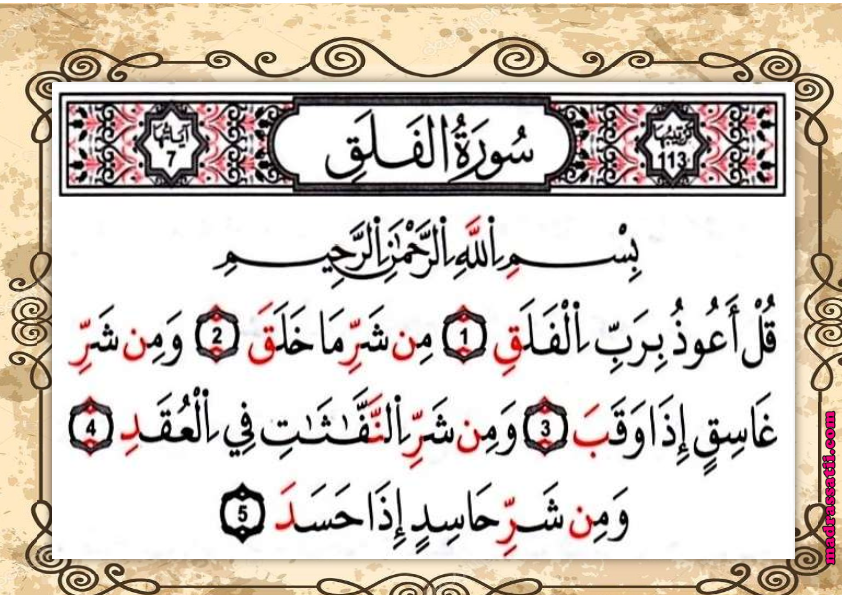 ترتيبها
113
سُورَةُ الْفَلَقِ
آياتها
7
بِسْمِ اِ۬للَّهِ اِ۬لرَّحْمَٰنِ اِ۬لرَّحِيمِ
قُلْ أَعُوذُ بِرَبِّ اِ۬لْفَلَقِ 1 مِن شَرِّ مَا خَلَقَ 2 وَمِن شَرِّ
غَاسِقٍ إِذَا وَقَبَ 3 وَمِن شَرِّ اِ۬لنَّفَّٰثَٰتِ فِي اِ۬لْعُقَدِ 4
وَمِن شَرِّ حَاسِدٍ إِذَا حَسَدَ 5
madrassatii.com